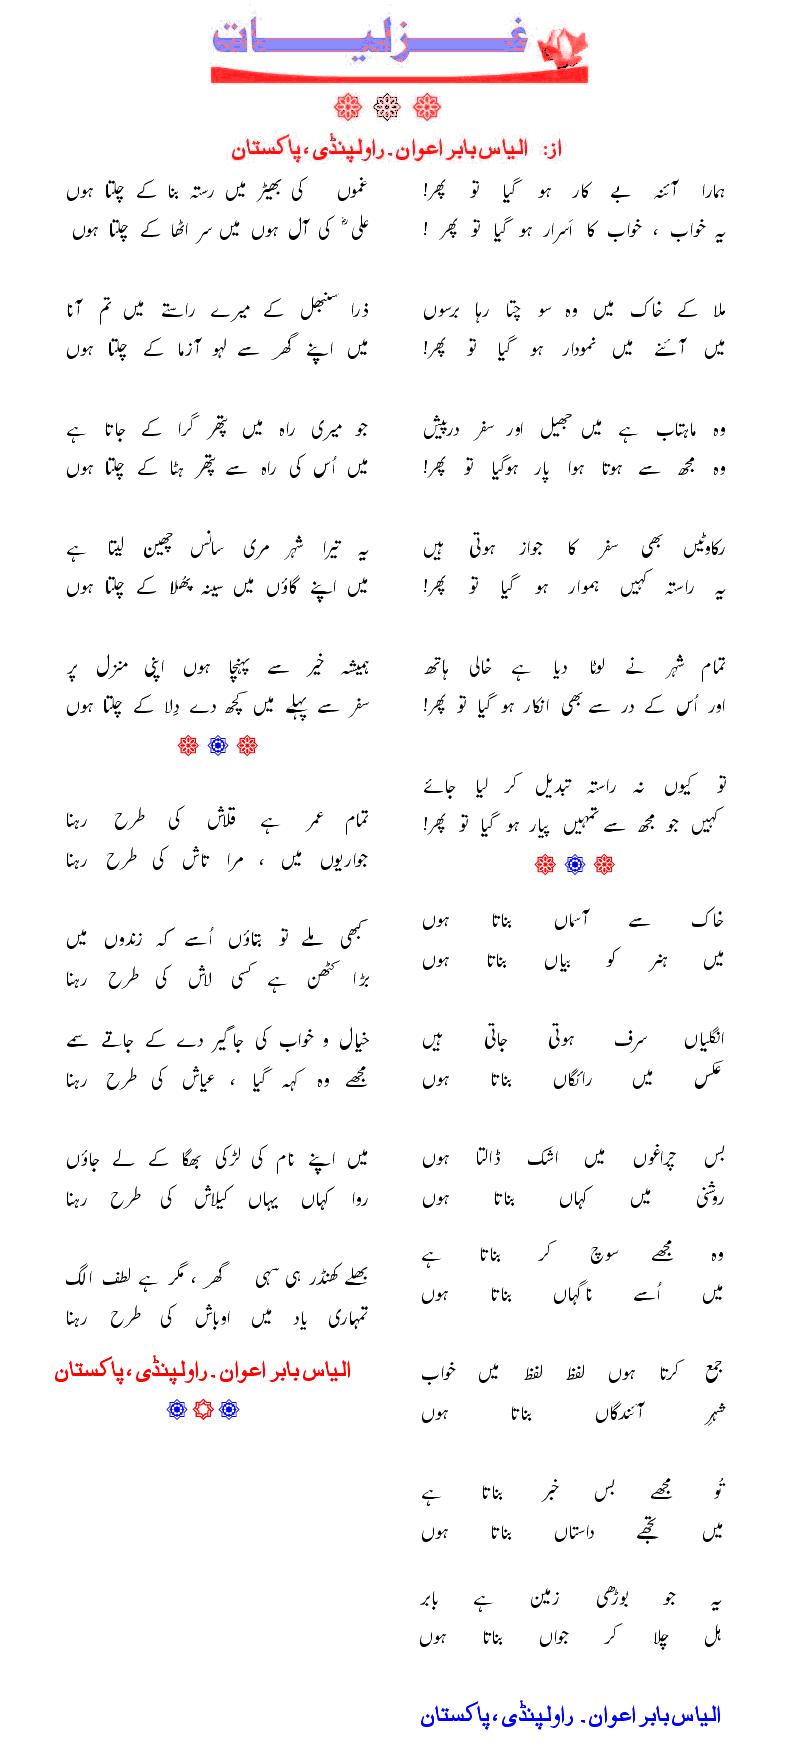 غزلیات
از: الیاس بابر اعوان۔ راولپنڈی، پاکستان
ہمارا آئنہ بے کار ہو گیا تو پھر!
یہ خواب ، خواب کا اَسرار ہو گیا تو پھر !
ملا کے خاک میں وہ سو چتا رہا برسوں
میں آئنے میں نمودار ہو گیا تو پھر!
وہ ماہتاب ہے میں جھیل اور سفر درپیش
وہ مجھ سے ہوتا ہوا پار ہوگیا تو پھر!
رکاوٹیں بھی سفر کا جواز ہوتی ہیں
یہ راستہ کہیں ہموار ہو گیا تو پھر!
تمام شہر نے لوٹا دیا ہے خالی ہاتھ
اور اُس کے در سے بھی انکار ہو گیا تو پھر!
تو کیوں نہ راستہ تبدیل کر لیا جائے
کہیں جو مجھ سے تمہیں پیار ہو گیا تو پھر!
خاک سے آسماں بناتا ہوں
میں ہنر کو بیاں بناتا ہوں
انگلیاں سرف ہوتی جاتی ہیں
عکس میں رائگاں بناتا ہوں
بس چراغوں میں اشک ڈالتا ہوں
روشنی میں کہاں بناتا ہوں
وہ مجھے سوچ کر بناتا ہے
میں اُسے ناگہاں بناتا ہوں
جمع کرتا ہوں لفظ لفظ میں خواب
شہرِ آئندگاں بناتا ہوں
تُو مجھے بس خبر بناتا ہے
میں تجھے داستاں بناتا ہوں
یہ جو بوڑھی زمین ہے بابر
ہل چلا کر جواں بناتا ہوں
الیاس بابر اعوان۔ راولپنڈی، پاکستان
غموں کی بھیڑ میں رستہ بنا کے چلتا ہوں
علیؓ کی آل ہوں میں سر اٹھا کے چلتا ہوں
ذرا سنبھل کے میرے راستے میں تم آنا
میں اپنے گھر سے لہو آزما کے چلتا ہوں
جو میری راہ میں پتھر گرا کے جاتا ہے
میں اُس کی راہ سے پتھر ہٹا کے چلتا ہوں
یہ تیرا شہر مری سانس چھین لیتا ہے
میں اپنے گاؤں میں سینہ پھُلا کے چلتا ہوں
ہمیشہ خیر سے پہنچا ہوں اپنی منزل پر
سفر سے پہلے میں کچھ دے دِلا کے چلتا ہوں
تمام عمر ہے قلاش کی طرح رہنا
جواریوں میں ، مرا تاش کی طرح رہنا
کبھی ملے تو بتاؤں اُسے کہ زندوں میں
بڑا کٹھن ہے کسی لاش کی طرح رہنا
خیال و خواب کی جاگیر دے کے جاتے سمے
مجھے وہ کہہ گیا ، عیاش کی طرح رہنا
میں اپنے نام کی لڑکی بھگا کے لے جاؤں
روا کہاں یہاں کیلاش کی طرح رہنا
بھلے کھنڈر ہی سہی گھر ، مگر ہے لطف الگ
تمہاری یاد میں اوباش کی طرح رہنا
الیاس بابر اعوان۔ راولپنڈی، پاکستان